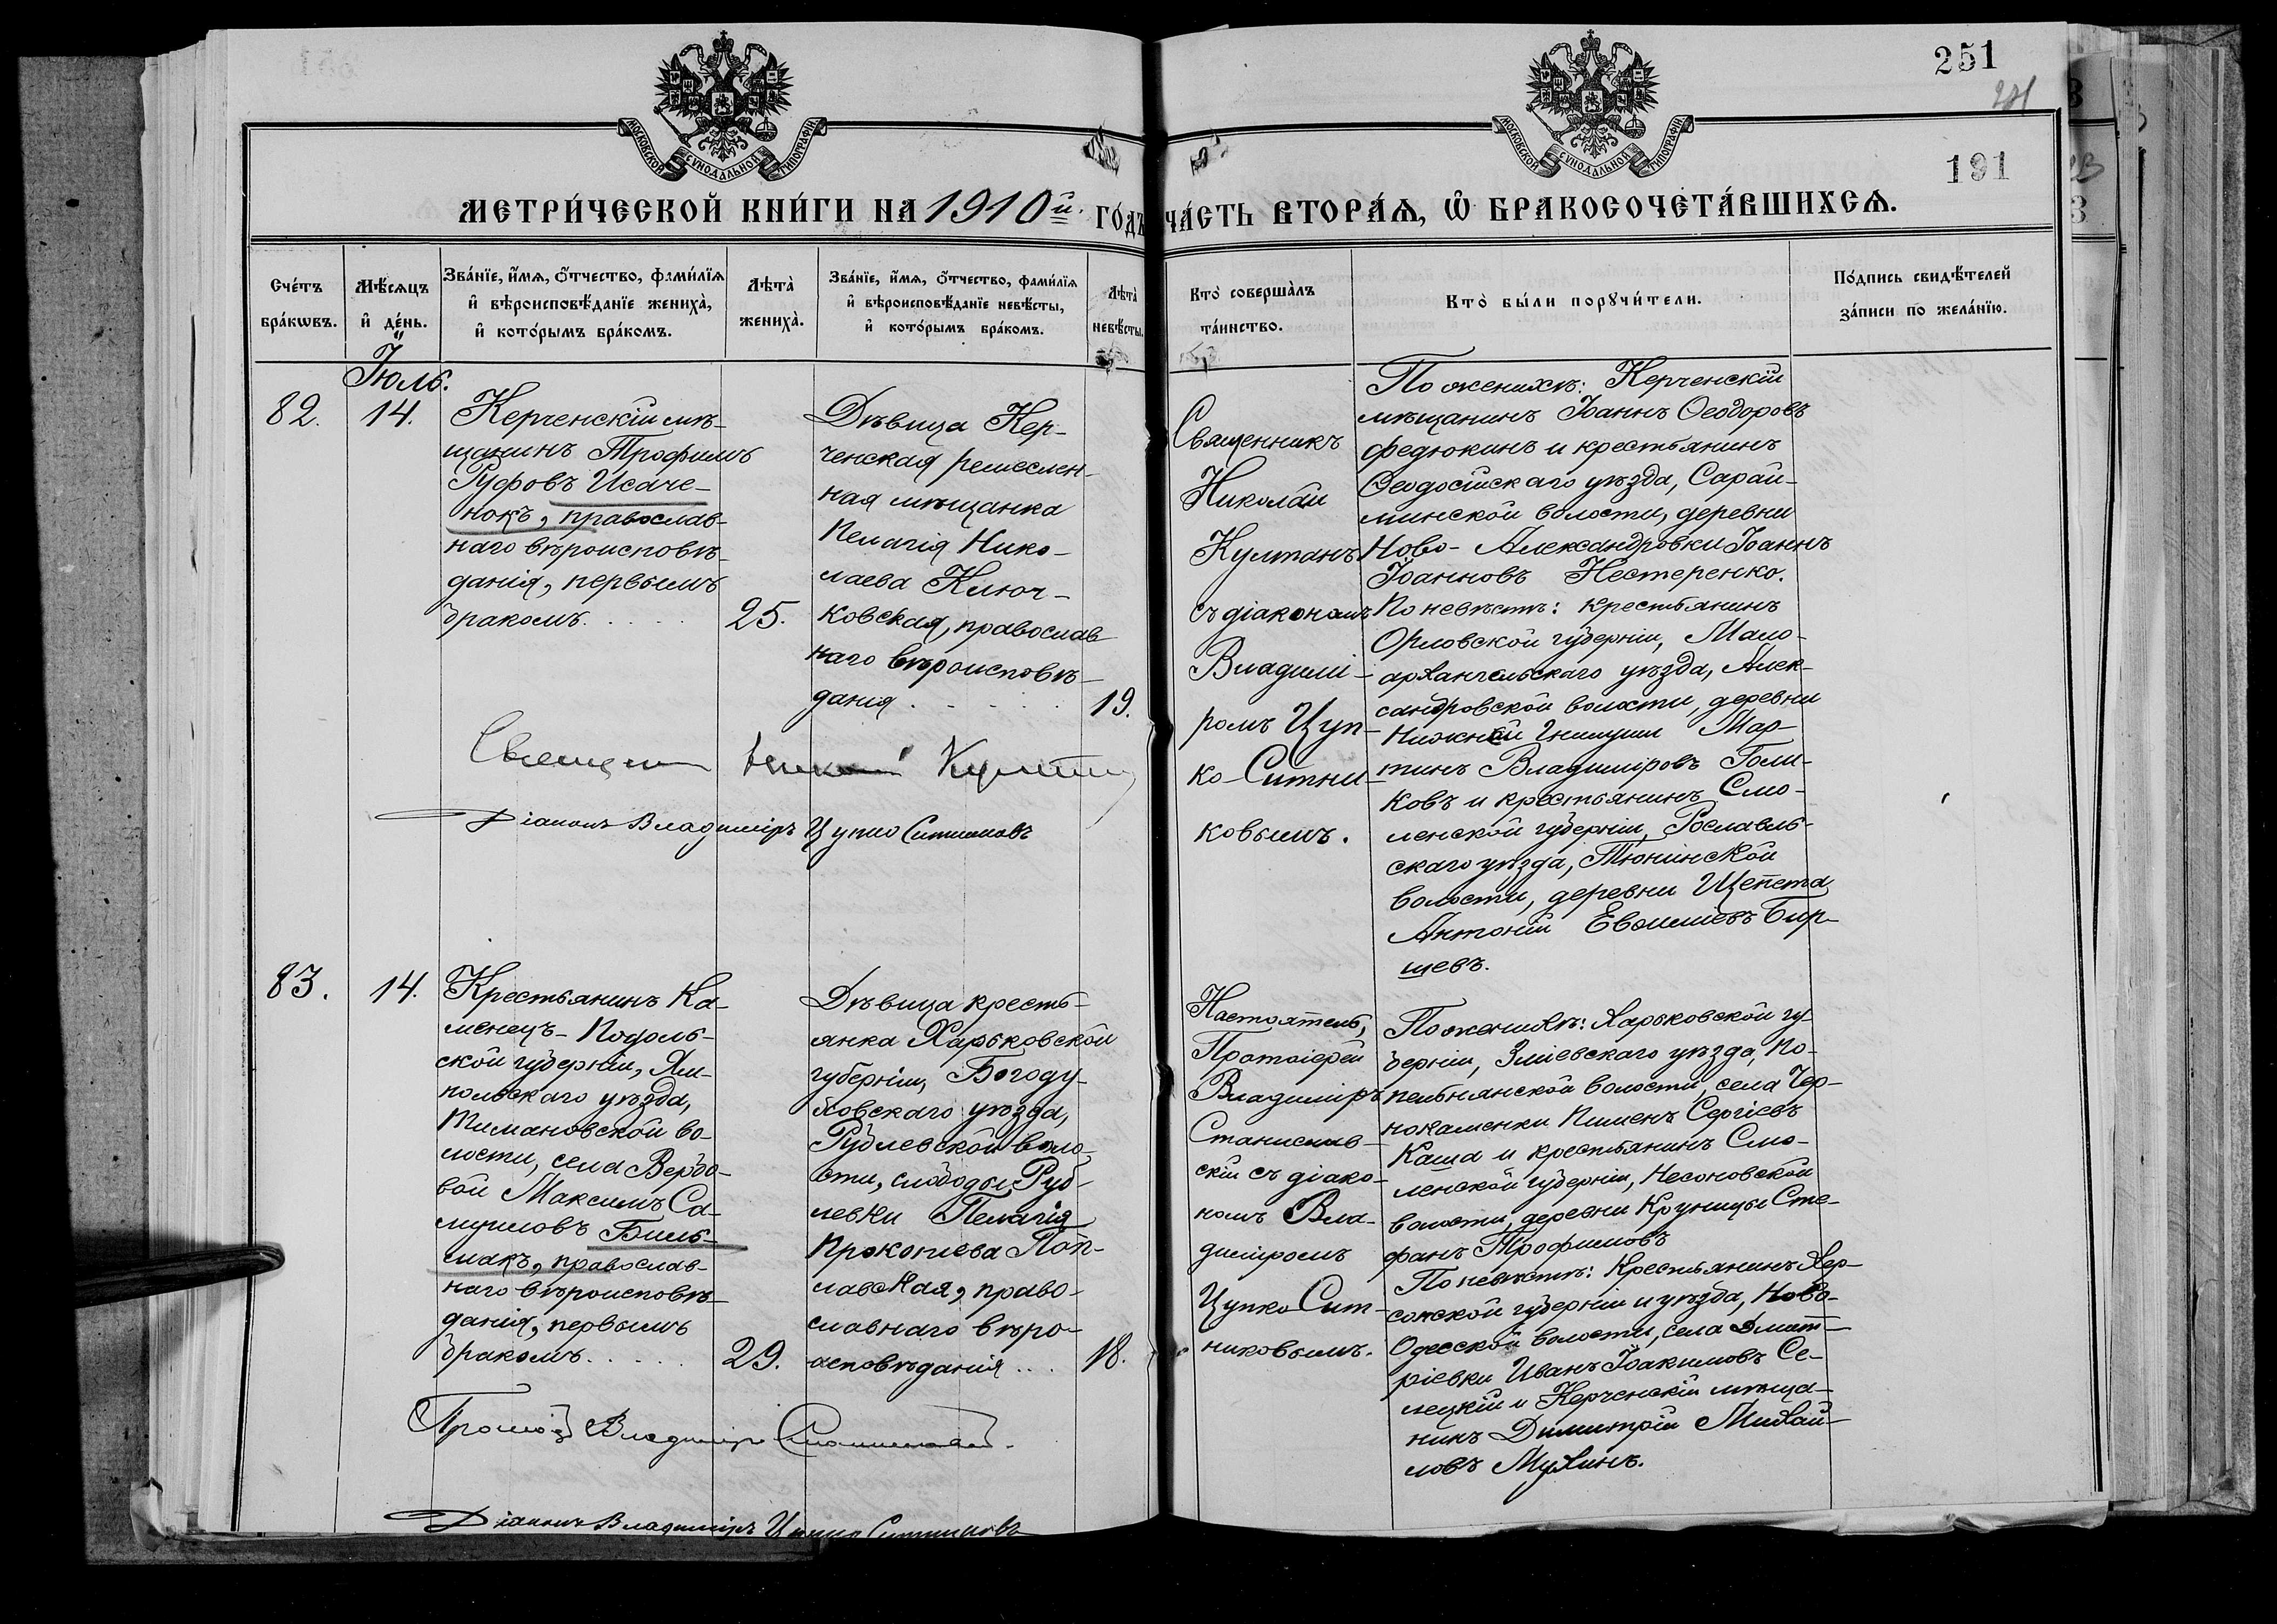 251
241
191
МОСКОВСКОЙ СѴНОДАЛЬНОЙ ТИПОГРАФІИ
МОСКОВСКОЙ СѴНОДАЛЬНОЙ ТИПОГРАФІИ
МЕТРИ́ЧЕСКОЙ КНИ́ГИ НА 1910й. ГО́ДЪ ЧА́СТЬ ВТОРА́Ѧ, Ѡ҆ БРАКОСОЧЕТА́ВШИХСѦ.
Сче́тъ
бра́кѡвъ.
Мѣ́сѧцъ
и҆ де́нь.
Зва́нїе, и҆́мѧ, ѻ҆́тчество, фами́лїѧ
и҆ вѣроисповѣ́данїе жениха̀,
и҆ кото́рымъ бра́комъ.
Лѣта̀
жениха̀.
Зва́нїе, и҆́мѧ, ѻ҆́тчество, фами́лїѧ
и҆ вѣроисповѣ́данїе невѣ́сты,
и҆ кото́рымъ бра́комъ.
Лѣта̀
невѣ́сты.
Кто̀ соверша́лъ
та́инство.
Кто̀ бы́ли порꙋчи́тели.
По́дпись свидѣ́телей
за́писи по жела́нїю.
Іюль.
82.
14.
Керченскій мѣ-
щанинъ Трофимъ
Руфовъ Исаче-
нокъ, православ-
наго вѣроисповѣ-
данія, первымъ
бракомъ. . . . .
25.
Дѣвица Кер-
ченская ремеслен-
ная мѣщанка
Пелагія Нико-
лаева Ключ-
ковская, православ
наго вѣроисповѣ-
данія . . . . .
19.
Священникъ
Николай
Култанъ
съ діакономъ
Владимі-
ромъ Цуп-
ко-Ситни-
ковымъ.
По женихѣ: Керченскій
мѣщанинъ Іоаннъ Ѳеодоровъ
Федюкинъ и крестьянинъ
Ѳеодосійскаго уѣзда, Сарай-
минской волости, деревни
Ново-Александровки Іоаннъ
Іоанновъ Нестеренко.
По невѣстѣ: крестьянинъ
Орловской губерніи, Мало-
архангельскаго уѣзда, Алек-
сандровской волости, деревни
Нижней Гнилуши Мар-
тинъ Владиміровъ Голи-
ковъ и крестьянинъ Смо-
ленской губерніи, Рославль-
скаго уѣзда, Тюнинской
волости, деревни Щепета
Антоній Евѳиміевъ Бир-
шевъ.
Діаконъ Владиміръ Цупко Ситниковъ
83.
14.
Крестьянинъ Ка-
менецъ-Подоль-
ской губерніи, Ям-
польскаго уѣзда,
Тимановской во-
лости, села Вербо-
вой Максимъ Са-
муиловъ Биль-
макъ, православ-
наго вѣроисповѣ-
данія, первымъ
бракомъ. . . . .
29.
Дѣвица кресть-
янка Харьковской
губерніи, Богоду-
ховскаго уѣзда,
Рублевской воло-
сти, слободы Руб-
левки Пелагія
Прокопіева Поп-
лавская, право-
славнаго вѣро-
исповѣданія . . .
18.
Настоятель,
Протоіерей
Владиміръ
Станислав-
скій съ діако-
номъ Вла-
диміромъ
Цупко Сит-
никовымъ.
По женихѣ: Харьковской гу-
берніи, Зміевскаго уѣзда, По-
пельнянской волости, села Чер-
нокаменки Пименъ Сергіевъ
Каша и крестьянинъ Смо-
ленской губерніи, Несоновской
волости, деревни Круницы Сте-
фанъ Трофимовъ
По невѣстѣ: Крестьянинъ Хер-
сонской губерніи и уѣзда, Ново-
Одесской волости, села Дмит-
ріевки Иванъ Іоакимовъ Се-
лецкій и Керченскій мѣща-
нинъ Димитрій Михай-
ловъ Мухинъ.
Діаконъ Владиміръ Цупко Ситниковъ